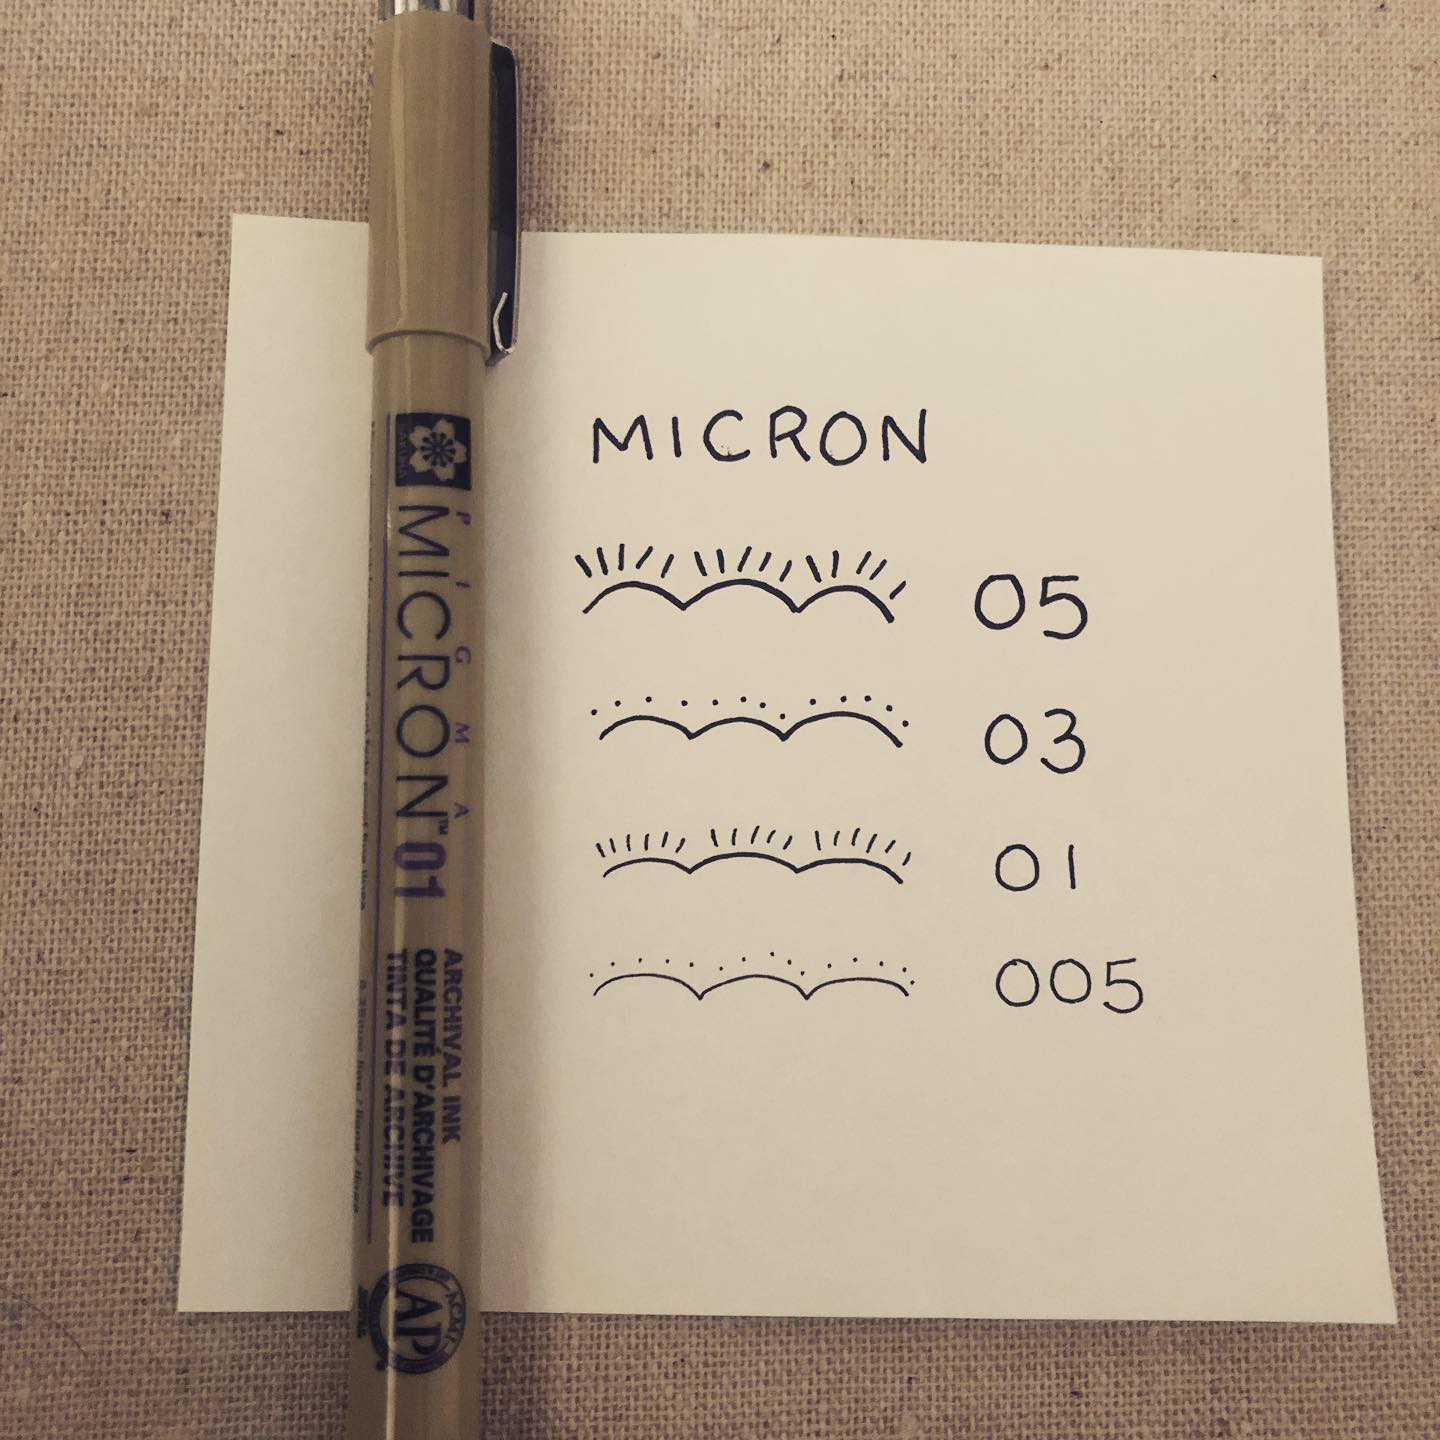 PIGMA
MICRON™ 01
ARCHIVAL INK
QUALITÉ D'ARCHIVAGE
TINTA DE ARCHIVE
AP
MICRON
05
03
01
005